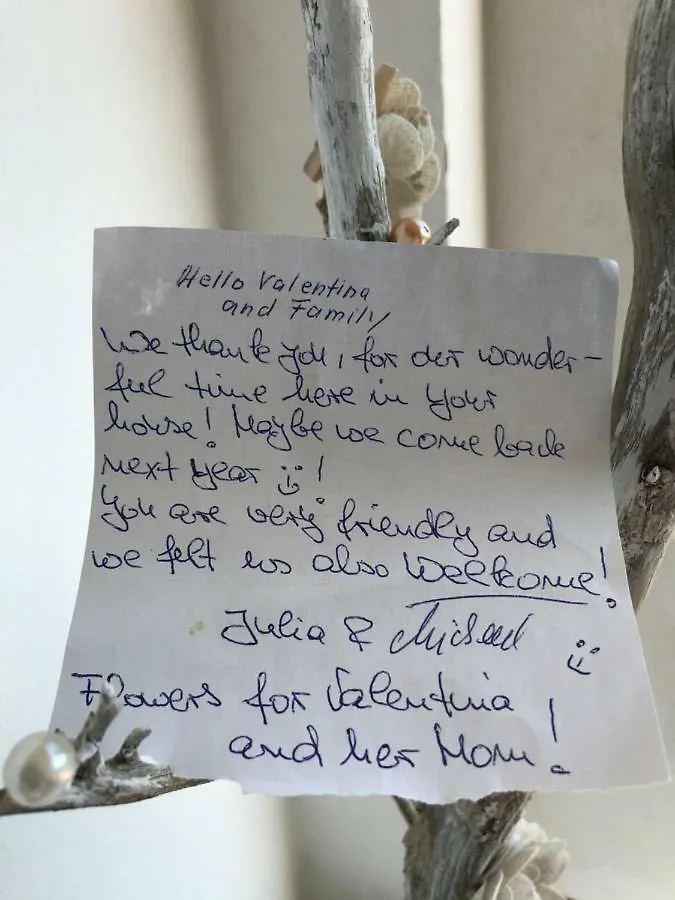 Hello Valentina
and Family
We thank you, for der wonder-
ful time here in your
house! Maybe we come back
next year :)!
You are very friendly and
we felt us also Wellkome!
Julia & Michael :)
Flowers for Valentina
and her Mom!